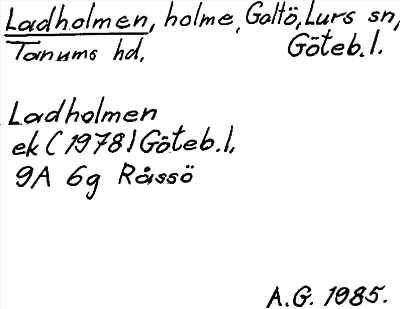 Ladholmen, holme, Galtö, Lurs sn,
Tanums hd. Göteb.l.
Ladholmen
ek (1978) Göteb.l.
9A 6g Råssö
A.G. 1985.